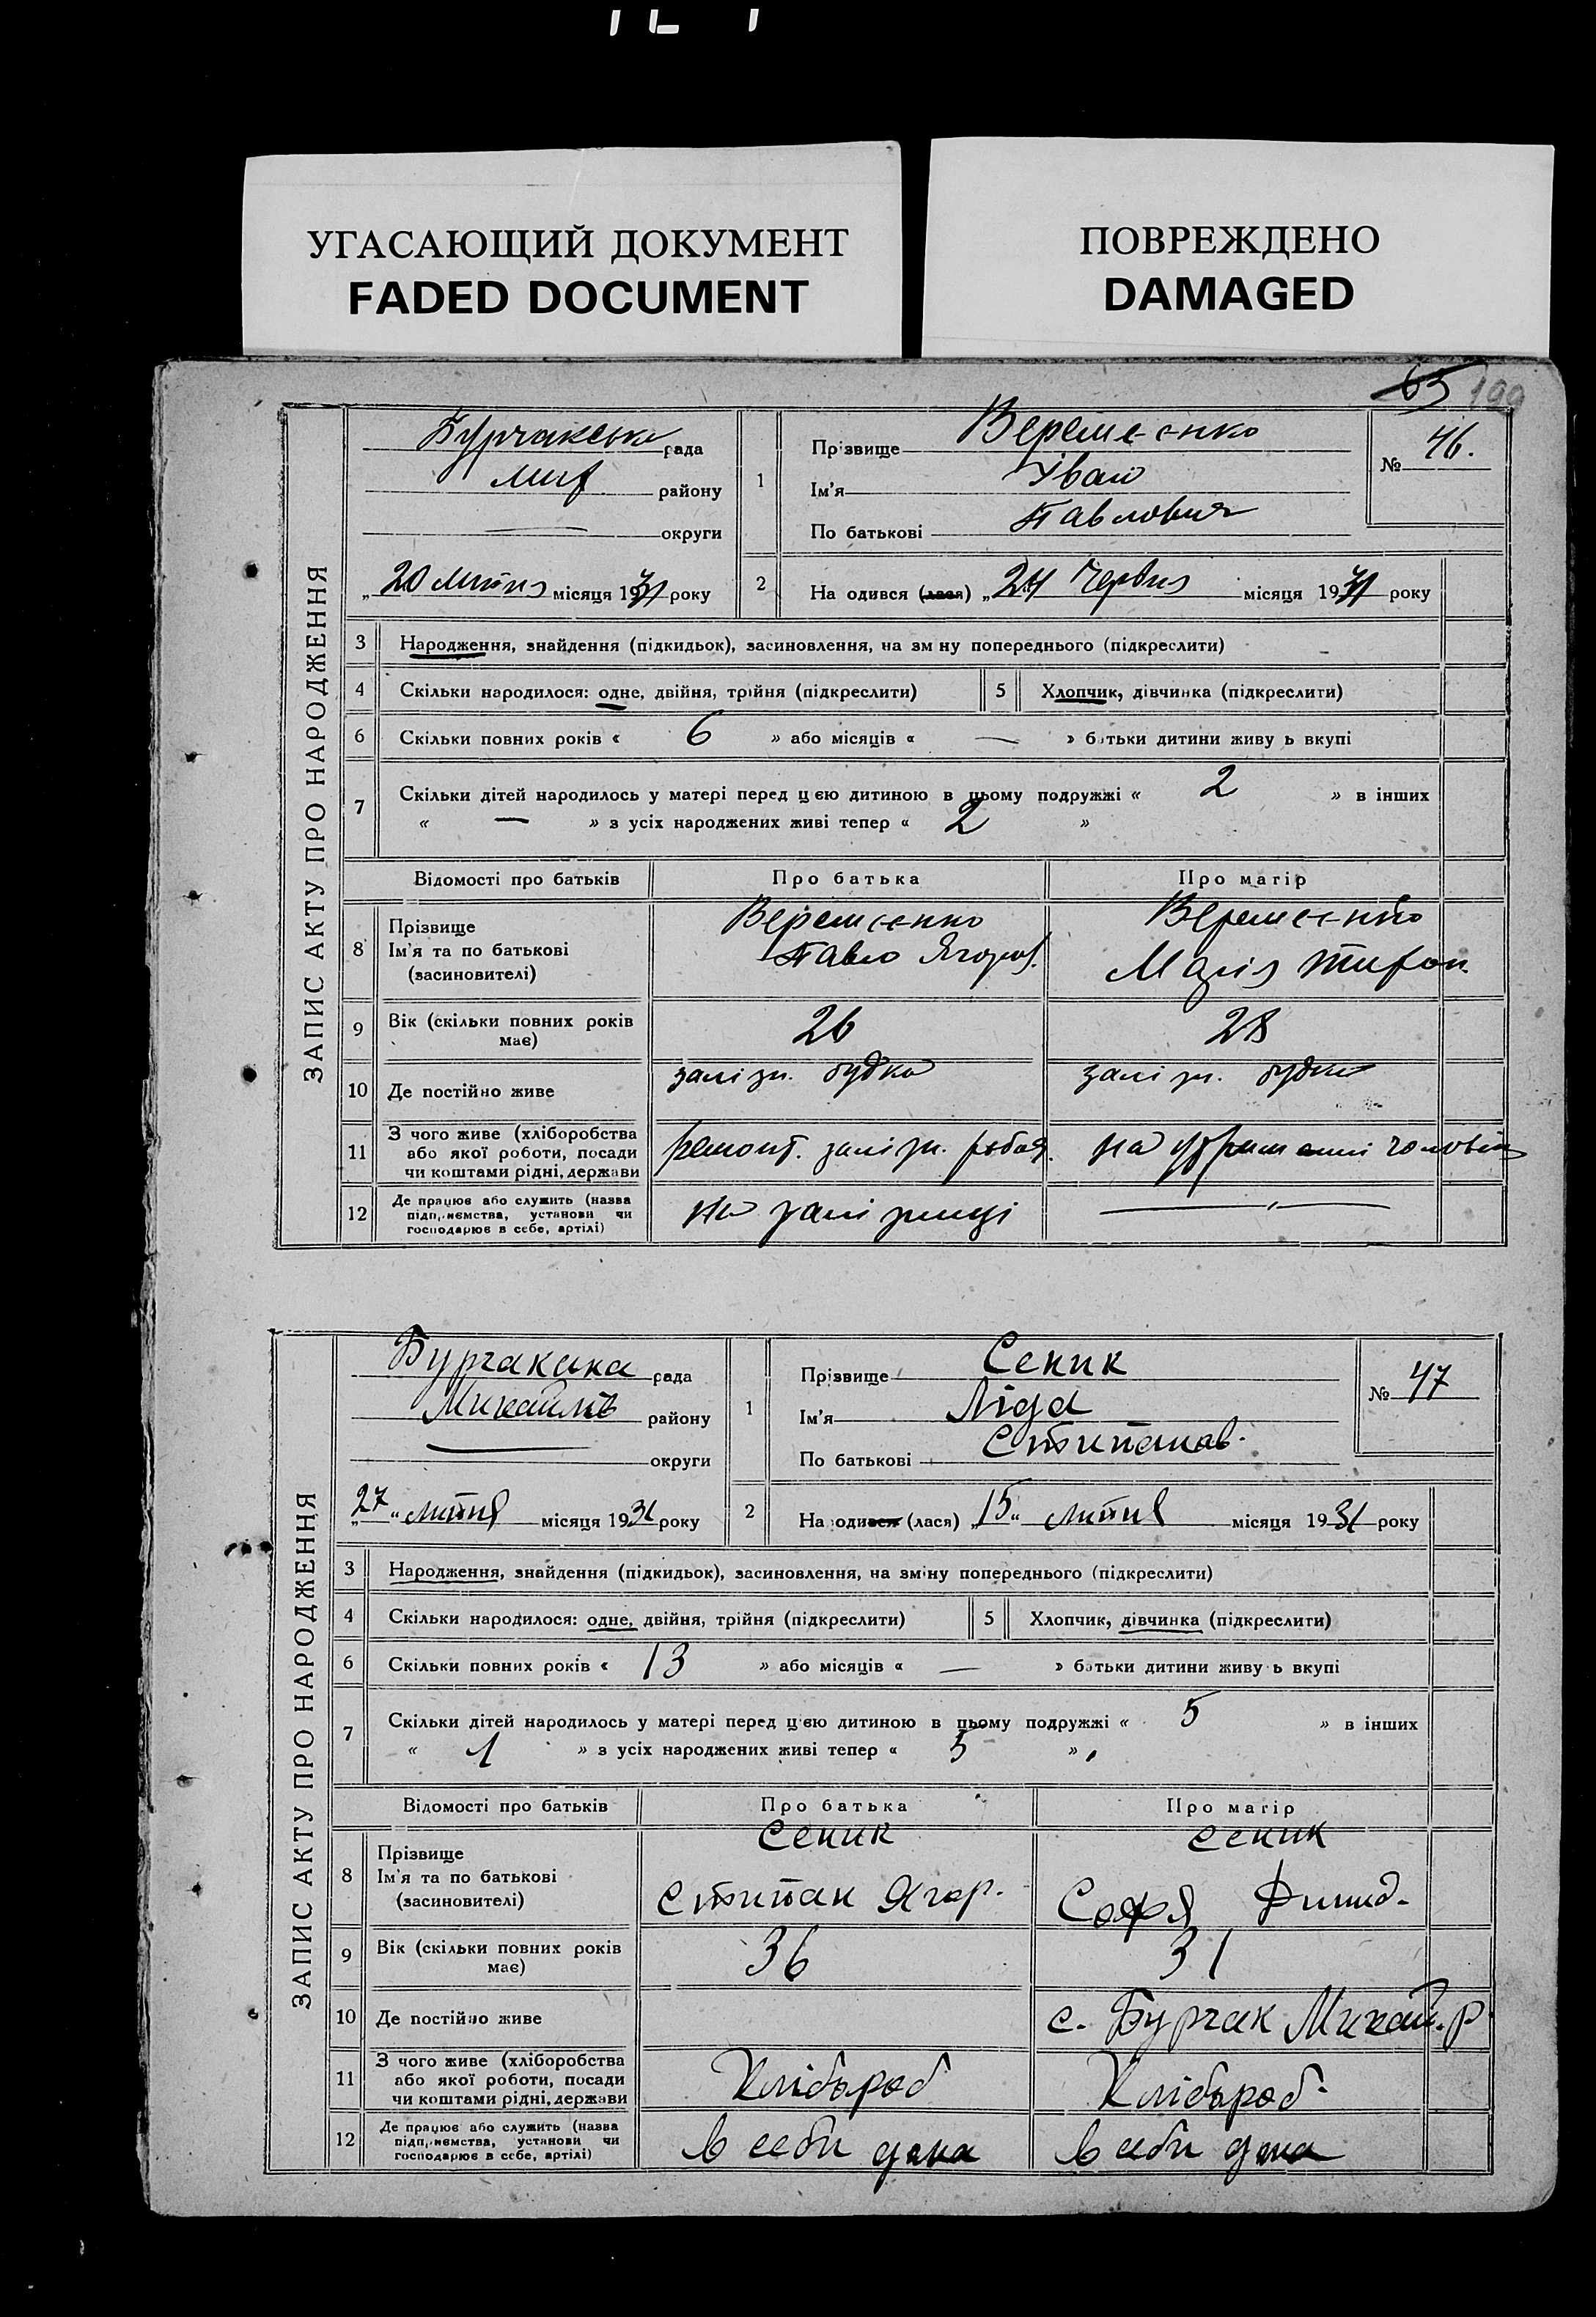 УГАСАЮЩИЙ ДОКУМЕНТ
FADED DOCUMENT
ПОВРЕЖДЕНО
DAMAGED
63 199
ЗАПИС АКТУ ПРО НАРОДЖЕННЯ
Бурчакська рада
Мих району
— округи
„20 липня місяця 1931 року
1 Прізвище Веремєєнко
Ім'я Іван
По батькові Павлович
№ 46.
2 На одився (лася) „24 червня місяця 1931 року
3 Народження, знайдення (підкидьок), засиновлення, на зм ну попереднього (підкреслити)
4 Скільки народилося: одне, двійня, трійня (підкреслити) 5 Хлопчик, дівчинка (підкреслити)
6 Скільки повних років « 6 » або місяців « — » батьки дитини живу ь вкупі
7 Скільки дітей народилось у матері перед цією дитиною в цьому подружжі « 2 » в інших
« — » з усіх народжених живі тепер « 2 »
Відомості про батьків Про батька Про матір
8 Прізвище
Ім'я та по батькові
(засиновителі)
Веремєєнко
Павло Ягоров.
Веремєєнко
Марія Тифон
9 Вік (скільки повних років має) 26 28
10 Де постійно живе залізн. будка залізн. будка
11 З чого живе (хліборобства
або якої роботи, посади
чи коштами рідні, держави
ремонт. залізн. робоч. на утриманні чоловіка
12 Де працює або служить (назва
підприємства, установи чи
господарює в себе, артілі)
на залізниці —„—
ЗАПИС АКТУ ПРО НАРОДЖЕННЯ
Бурчакська рада
Михайлів району
— округи
„27“ липня місяця 1931 року
1 Прізвище Сеник
Ім'я Ліда
По батькові Стипанав.
№ 47
2 На одився (лася) „15“ липня місяця 1931 року
3 Народження, знайдення (підкидьок), засиновлення, на зміну попереднього (підкреслити)
4 Скільки народилося: одне, двійня, трійня (підкреслити) 5 Хлопчик, дівчинка (підкреслити)
6 Скільки повних років « 13 » або місяців « — » батьки дитини живу ь вкупі
7 Скільки дітей народилось у матері перед цією дитиною в цьому подружжі « 5 » в інших
« 1 » з усіх народжених живі тепер « 5 »
Відомості про батьків Про батька Про матір
8 Прізвище
Ім'я та по батькові
(засиновителі)
Сеник
Стипан Ягор.
Сеник
Софя
9 Вік (скільки повних років має) 36 31
10 Де постійно живе с. Бурчак Михай. р.
11 З чого живе (хліборобства
або якої роботи, посади
чи коштами рідні, держави
Хлібороб Хлібороб.
12 Де працює або служить (назва
підприємства, установи чи
господарює в себе, артілі)
в себи дома в себи дома